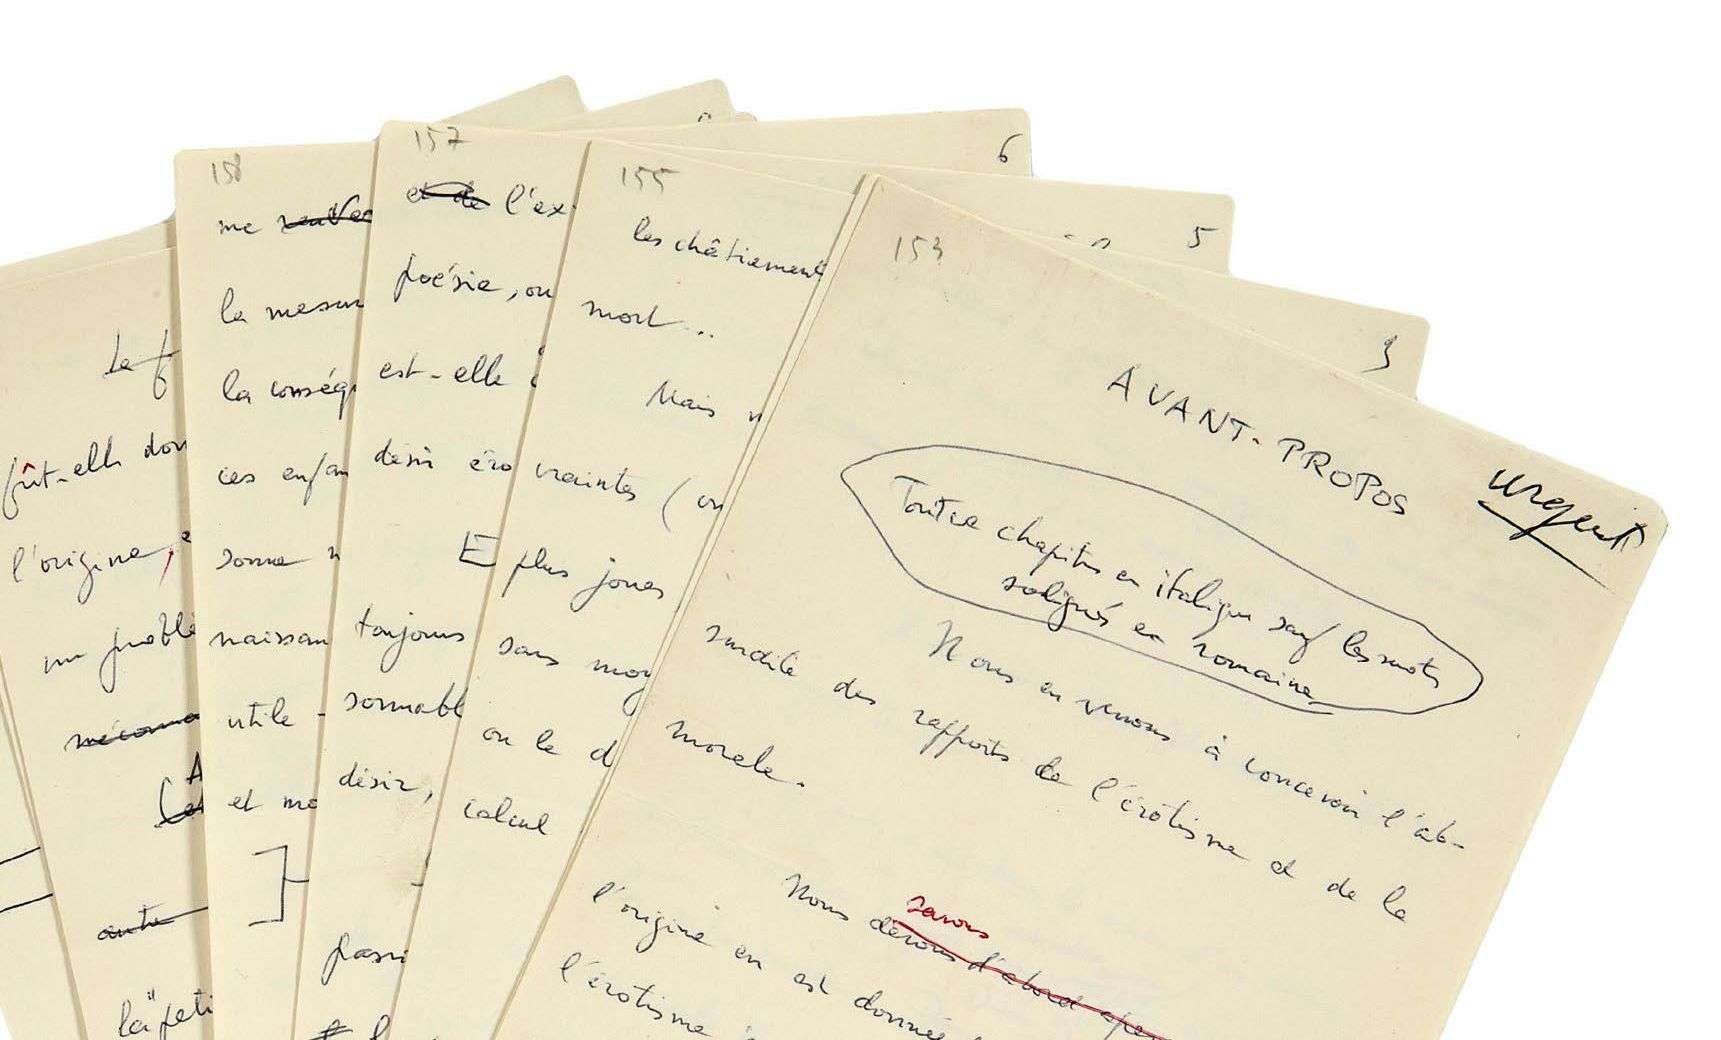 6
5
3
153
AVANT-PROPOS
urgent
Tout ce chapitre en italique sauf les mots
soulignés en romaine
Nous en venons à concevoir l'ab-
surdité des rapports de l'érotisme et de la
morale.
savons
Nous devons d'abord
l'origine en est donnée
l'érotisme
155
les châtiment
mort...
Mais
craintes (
plus joues
sans moy
ou le d
calcul
157
et de l'ex
poésie, ou
est-elle
désir éro
E
toujours
sonnabl
désir,
passi
158
me
la mesur
la conséq
ces enfan
sonne n
naissan
utile -
et mo
Le f
fût-elle don
l'origine,
un problè
A
autre
la peti